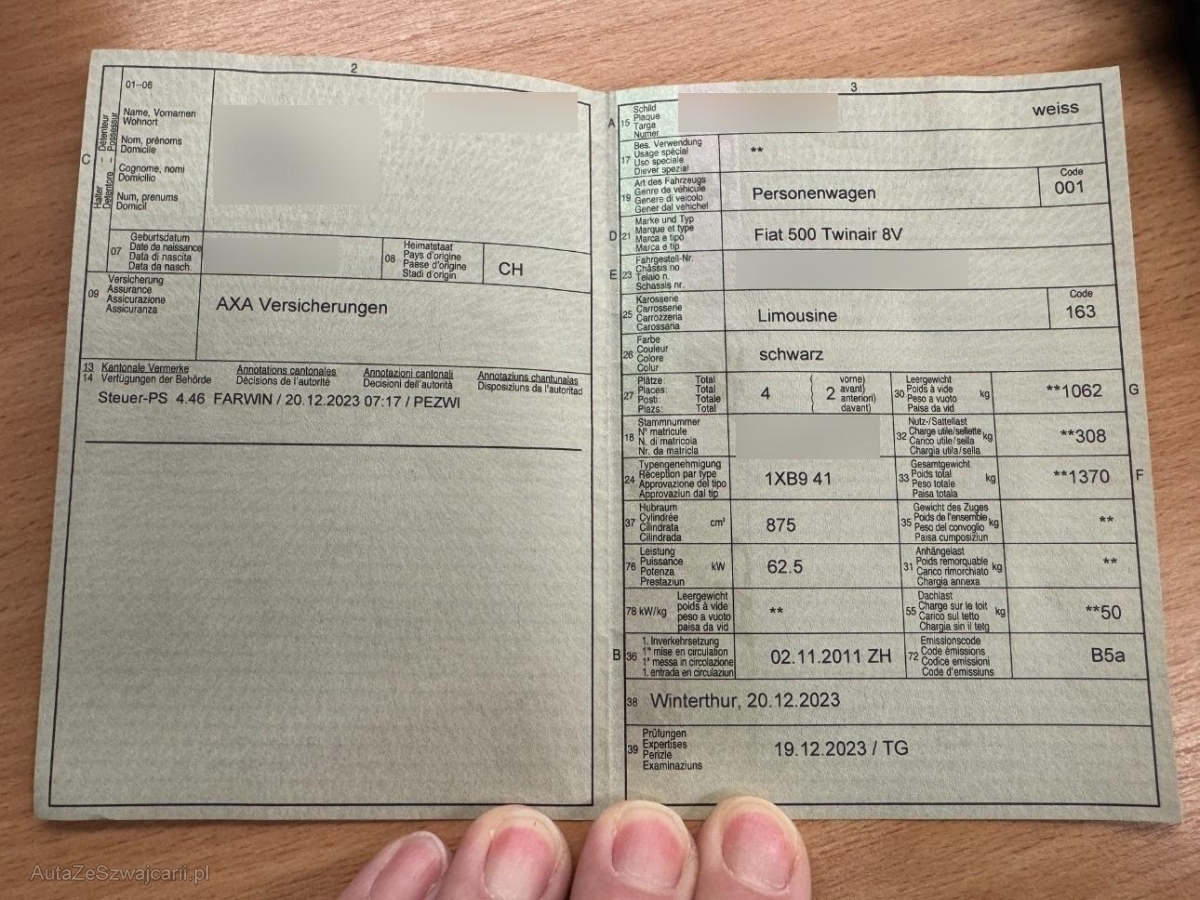 2
01–06
C
Halter – Détenteur
Detentore – Possessur
Name, Vornamen
Wohnort
Nom, prénoms
Domicile
Cognome, nomi
Domicilio
Num, prenums
Domicil
07
Geburtsdatum
Date de naissance
Data di nascita
Data da nasch.
08
Heimatstaat
Pays d'origine
Paese d'origine
Stadi d'origin
CH
09
Versicherung
Assurance
Assicurazione
Assicuranza
AXA Versicherungen
13 Kantonale Vermerke Annotations cantonales Annotazioni cantonali Annotaziuns chantunalas
14 Verfügungen der Behörde Décisions de l'autorité Decisioni dell'autorità Disposiziuns da l'autoritad
Steuer-PS 4.46 FARWIN / 20.12.2023 07:17 / PEZWI
3
A 15
Schild
Plaque
Targa
Numer
weiss
17
Bes. Verwendung
Usage spécial
Uso speciale
Diever spezial
**
19
Art des Fahrzeugs
Genre de véhicule
Genere di veicolo
Gener dal vehichel
Personenwagen
Code
001
D 21
Marke und Typ
Marque et type
Marca e tipo
Marca e tip
Fiat 500 Twinair 8V
E 23
Fahrgestell-Nr.
Châssis no
Telaio n.
Schassis nr.
25
Karosserie
Carrosserie
Carrozzeria
Carossaria
Limousine
Code
163
26
Farbe
Couleur
Colore
Colur
schwarz
27
Plätze: Total
Places: Total
Posti: Totale
Plazs: Total
4
2
vorne)
avant)
anteriori)
davant)
30
Leergewicht
Poids à vide
Peso a vuoto
Paisa da vid
kg
**1062
G
18
Stammnummer
N° matricule
N. di matricola
Nr. da matricla
32
Nutz-/Sattellast
Charge utile/sellette
Carico utile/sella
Chargia utila/sella
kg
**308
24
Typengenehmigung
Réception par type
Approvazione del tipo
Approvaziun dal tip
1XB9 41
33
Gesamtgewicht
Poids total
Peso totale
Paisa totala
kg
**1370
F
37
Hubraum
Cylindrée
Cilindrata
Cilindrada
cm³
875
35
Gewicht des Zuges
Poids de l'ensemble
Peso del convoglio
Paisa cumposiziun
kg
**
76
Leistung
Puissance
Potenza
Prestaziun
kW
62.5
31
Anhängelast
Poids remorquable
Carico rimorchiato
Chargia annexa
kg
**
78 kW/kg
Leergewicht
poids à vide
peso a vuoto
paisa da vid
**
55
Dachlast
Charge sur le toit
Carico sul tetto
Chargia sin il tetg
kg
**50
B 36
1. Inverkehrsetzung
1re mise en circulation
1a messa in circolazione
1. entrada en circulaziun
02.11.2011 ZH
72
Emissionscode
Code émissions
Codice emissioni
Code d'emissiuns
B5a
38
Winterthur, 20.12.2023
39
Prüfungen
Expertises
Perizie
Examinaziuns
19.12.2023 / TG
AutaZeSzwajcarii.pl